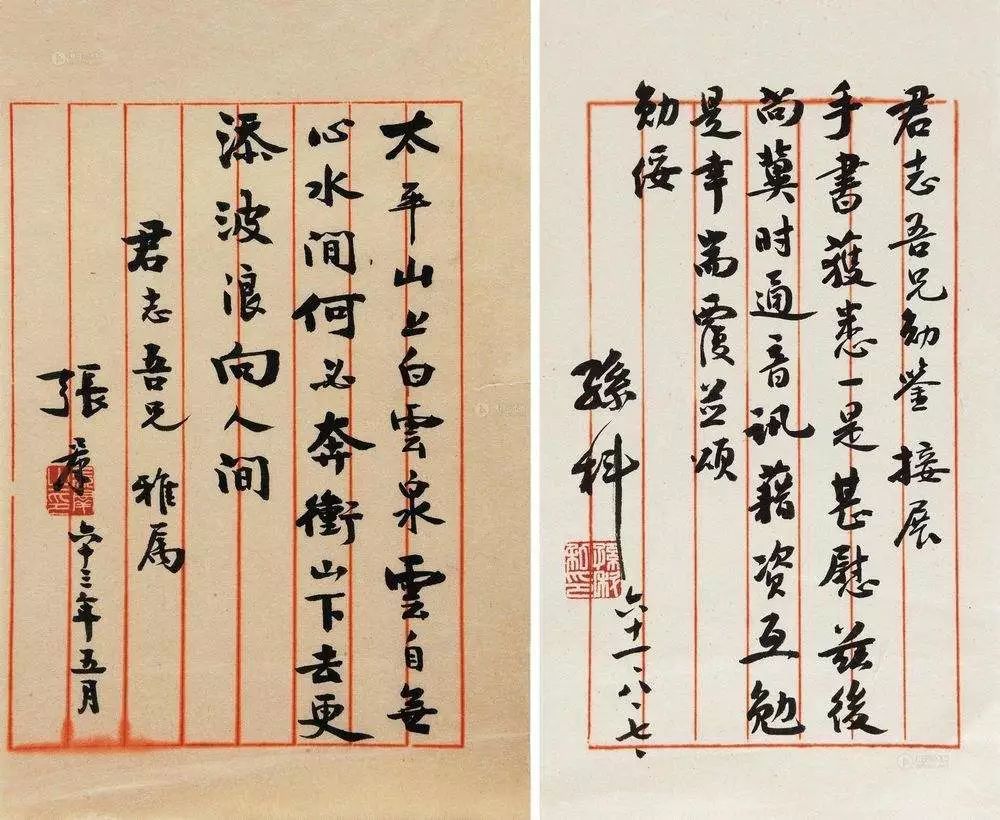 太平山上白雲泉雲自無
心水間何必奔衝山下去更
添波浪向人间
君志吾兄 雅属
張羣 六十三年五月
君志吾兄勛鑒 接展
手書獲悉一是甚慰茲後
尚冀时通音訊藉資互勉
是幸耑覆並頌
勛綏
孫科 六十一、八、七、